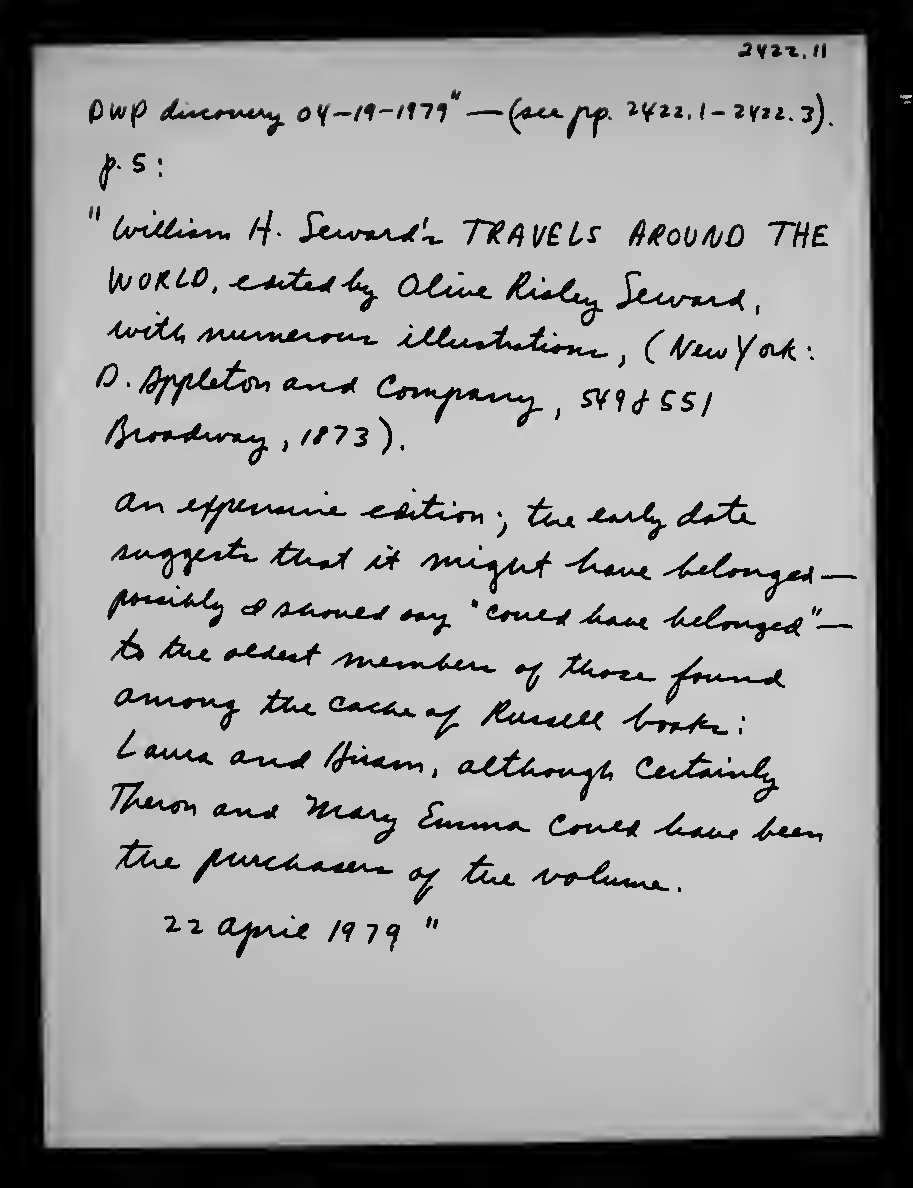 2422.11
DWP discovery 04-19-1979" — (see pp. 2422.1-2422.3).
p. 5:
"William H. Seward's TRAVELS AROUND THE
WORLD, edited by Olive Risley Seward,
with numerous illustrations, (New York:
D. Appleton and Company, 549 & 551
Broadway, 1873).
An expensive edition; the early date
suggests that it might have belonged—
possibly I should say "could have belonged"—
to the oldest members of those found
among the cache of Russell books:
Laura and Hiram, although certainly
Theron and Mary Emma could have been
the purchasers of the volume.
22 April 1979"